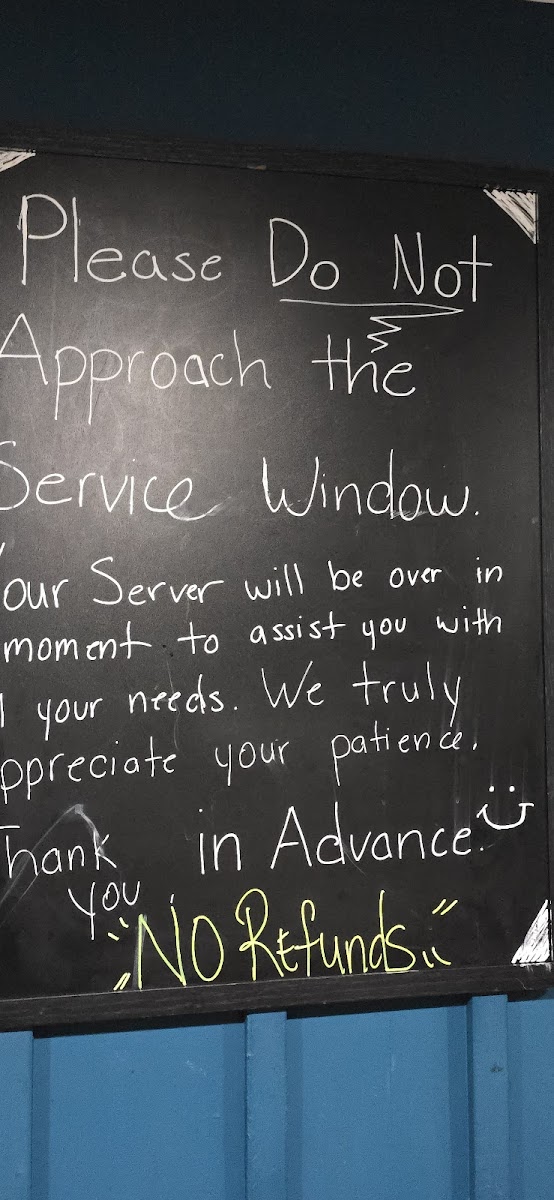 Please Do Not
Approach the
Service Window.
Your Server will be over in
moment to assist you with
your needs. We truly
appreciate your patience.
Thank you in Advance.
NO Refunds